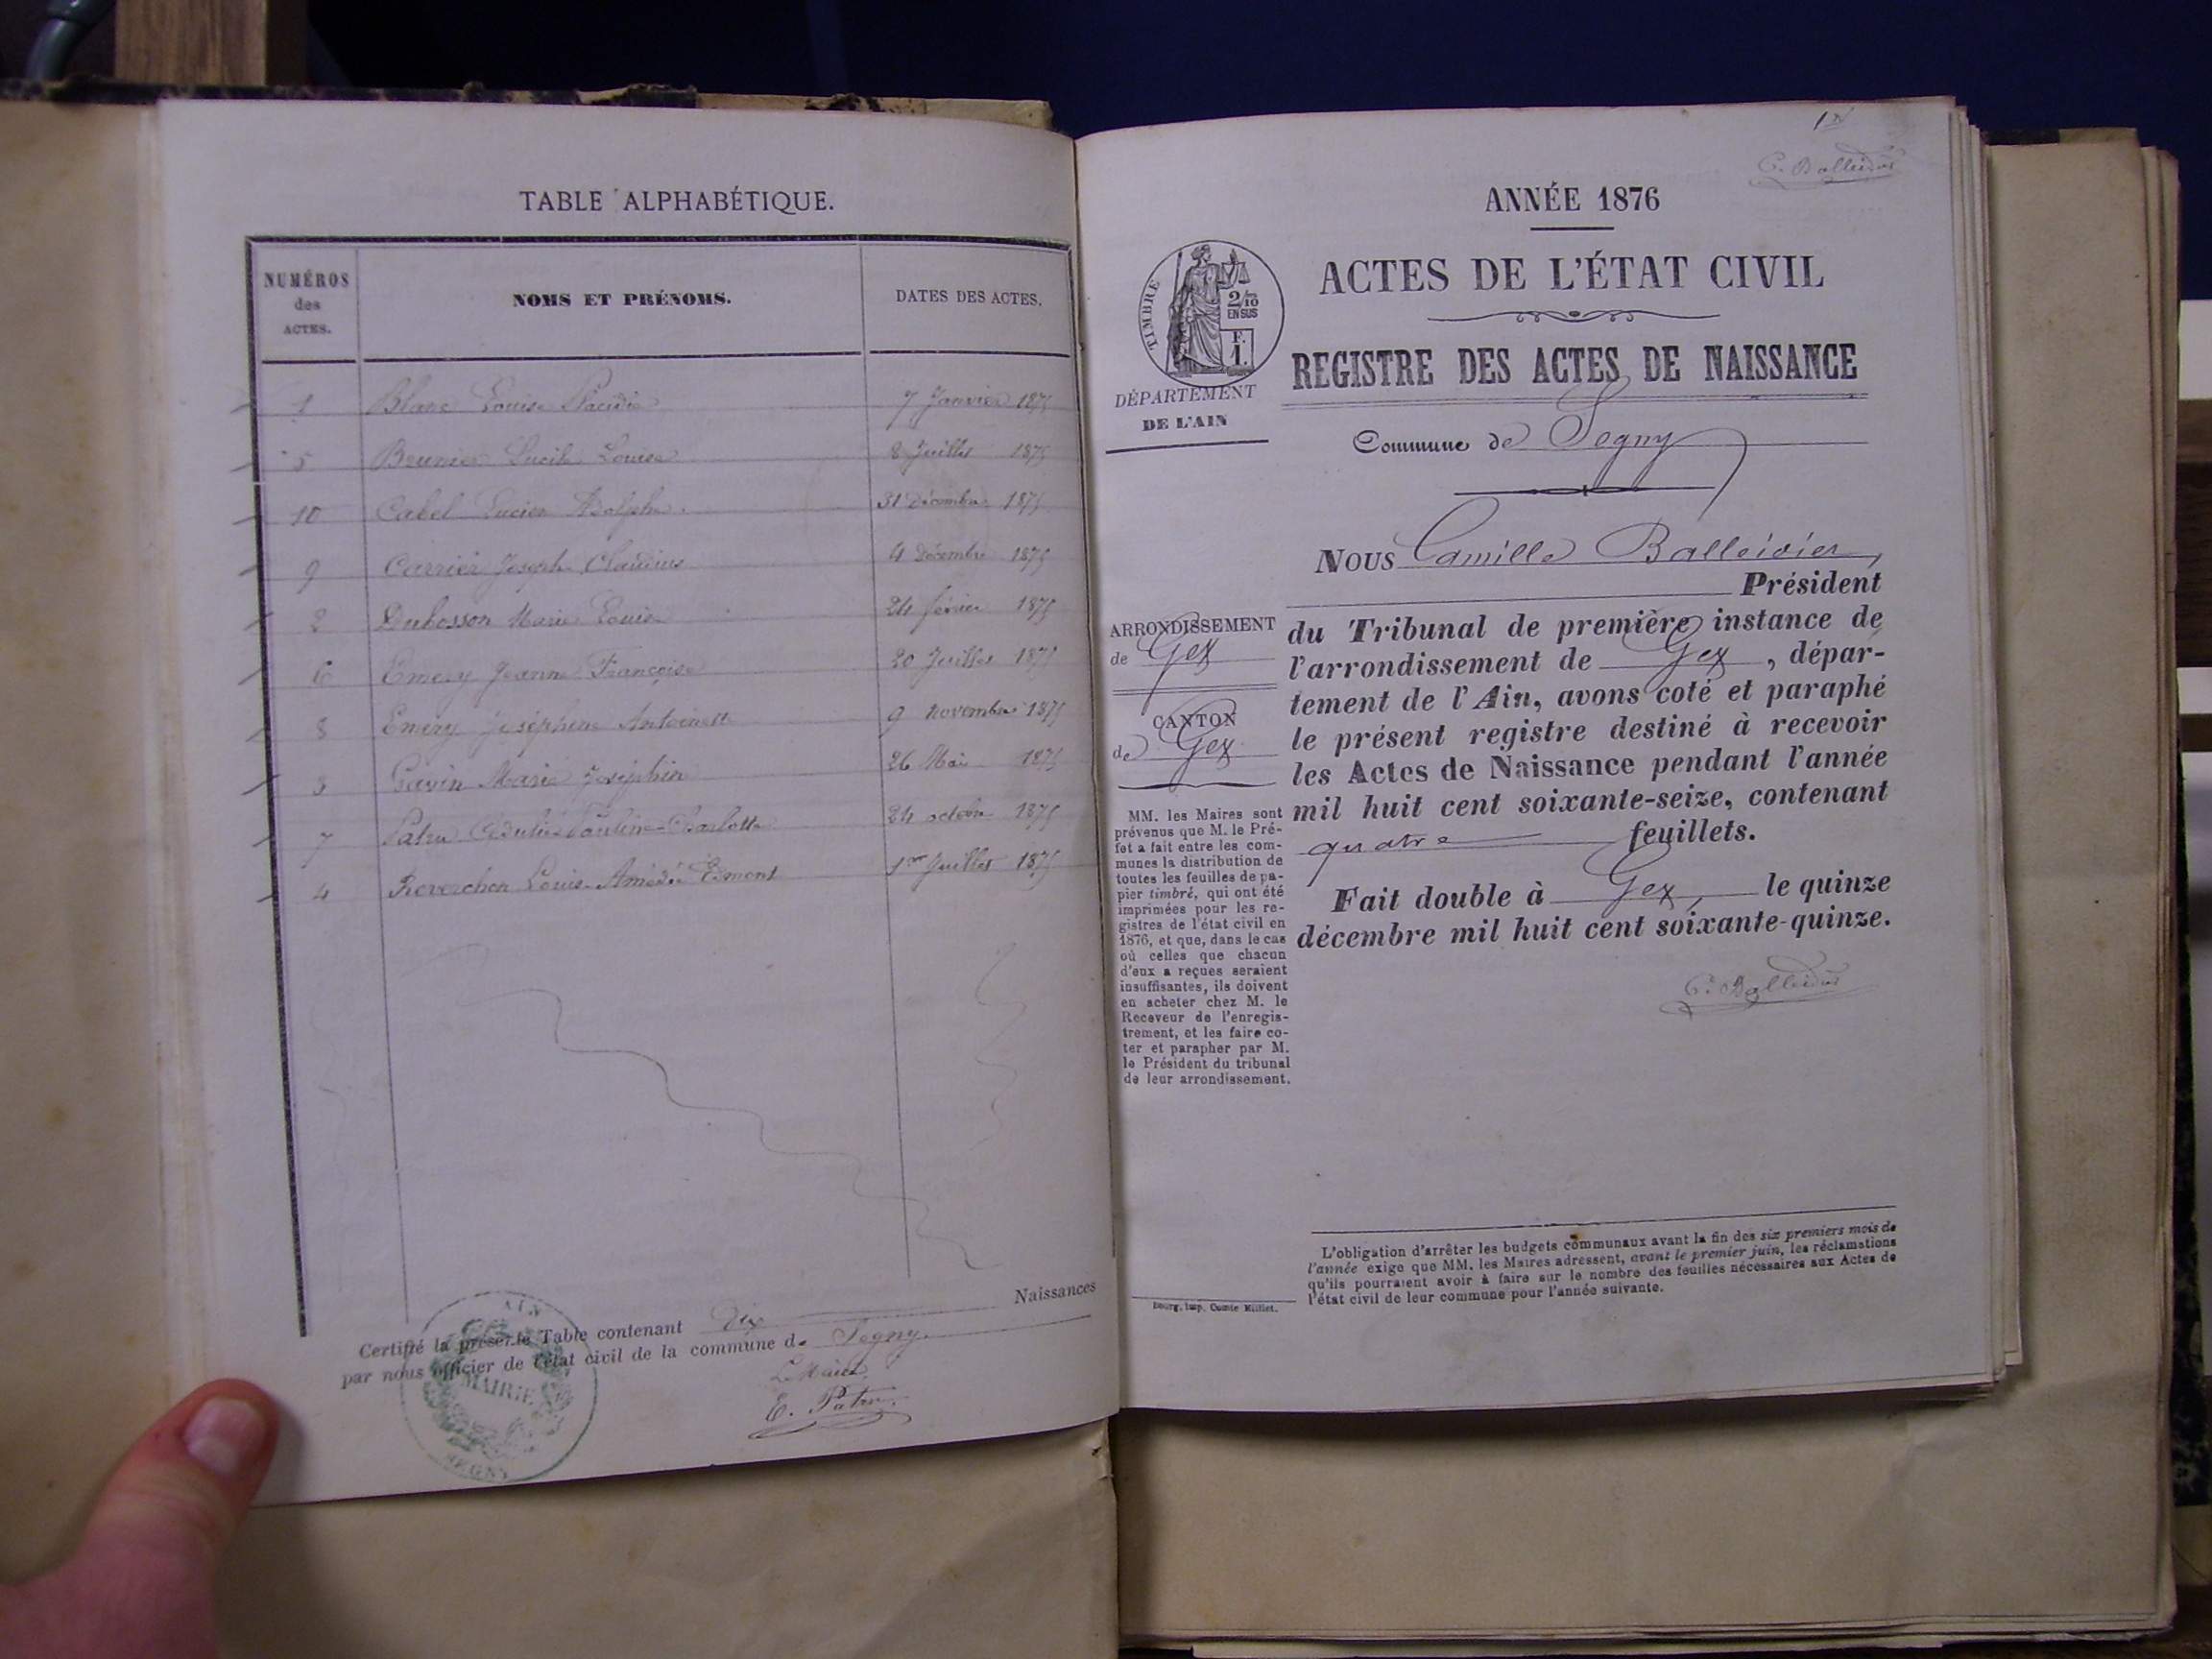 TABLE ALPHABÉTIQUE.
NUMÉROS
des
ACTES.
NOMS ET PRÉNOMS.
DATES DES ACTES.
1 Blanc Louise Placidie 7 Janvier 1875
5 Brunier Lucile Louise 8 Juillet 1875
10 Cabel Lucien Adolphe. 31 Décembre 1875
9 Carrier Joseph Claudius 4 Décembre 1875
2 Dubosson Marie Louise 24 février 1875
6 Emery Jeanne Françoise 20 Juillet 1875
8 Emery Joséphine Antoinette 9 novembre 1875
3 Marie Joséphine 26 Mai 1875
7 Patru Pauline-Charlotte 24 octobre 1875
4 Reverchon Louis Amédée Edmont 1er Juillet 1875
Certifié la présente Table contenant Dix Naissances
par nous officier de l'état civil de la commune de Segny.
Le Maire
E. Patru
AIN
MAIRIE
SEGNY
C. Balleidier
ANNÉE 1876
ACTES DE L'ÉTAT CIVIL
TIMBRE
2/10
EN SUS
F.
1.
REGISTRE DES ACTES DE NAISSANCE
DÉPARTEMENT
DE L'AIN
Commune de Segny
NOUS Camille Balleidier,
Président
ARRONDISSEMENT
de Gex
CANTON
de Gex
du Tribunal de première instance de
l'arrondissement de Gex, dépar-
tement de l'Ain, avons coté et paraphé
le présent registre destiné à recevoir
les Actes de Naissance pendant l'année
mil huit cent soixante-seize, contenant
quatre feuillets.
Fait double à Gex, le quinze
décembre mil huit cent soixante-quinze.
C. Balleidier
MM. les Maires sont
prévenus que M. le Pré-
fet a fait entre les com-
munes la distribution de
toutes les feuilles de pa-
pier timbré, qui ont été
imprimées pour les re-
gistres de l'état civil en
1876, et que, dans le cas
où celles que chacun
d'eux a reçues seraient
insuffisantes, ils doivent
en acheter chez M. le
Receveur de l'enregis-
trement, et les faire co-
ter et parapher par M.
le Président du tribunal
de leur arrondissement.
L'obligation d'arrêter les budgets communaux avant la fin des six premiers mois de
l'année exige que MM. les Maires adressent, avant le premier juin, les réclamations
qu'ils pourraient avoir à faire sur le nombre des feuilles nécessaires aux Actes de
l'état civil de leur commune pour l'année suivante.
Bourg, imp. Comte Milliet.